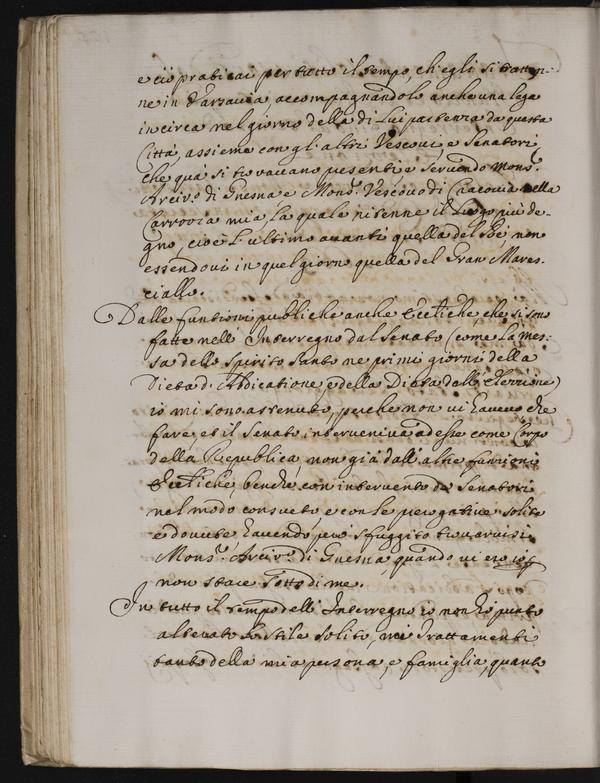 e ciò praticai per tutto il tempo, ch'egli si tratten-
ne in Varsavia, accompagnandolo anche una lega
in circa nel giorno della di Lui partenza da questa
Città, assieme con gl'altri Vescovi, e Senatori,
che quà si trovavano presenti, e servendo Mons.r
Arciv.o di Gnesna e Mons.r Vescovo di Cracovia nella
Carrozza mia, la quale ritenne il Luogo più de-
gno, cioè l'ultimo avanti quella del Rè, non
essendovi in quel giorno quella del Gran Mares-
ciallo.
Dalle funtioni publiche anche Eccl.tiche che si sono
fatte nell'Interregno dal Senato (come la mes-
sa dello Spirito Santo ne primi giorni della
Dieta d'Abdicatione, e della Dieta dell'Elezzione)
io mi sono astenuto, perche non vi havevo che
fare, et il Senato interveniva ad esse come Corpo
della Republica, non già dall'altre funzioni
Eccl.tiche, benche con intervento de' Senatori
nel modo consueto e con le prerogative solite
e dovute havendo però sfuggito trovarvisi
Mons.r Arciv.o di Gnesna, quando vi ero io per
non stare sotto di me.
In tutto il tempo dell'Interregno io non hò punto
alterato lo stile solito, nei trattamenti
tanto della mia persona, e famiglia, quanto